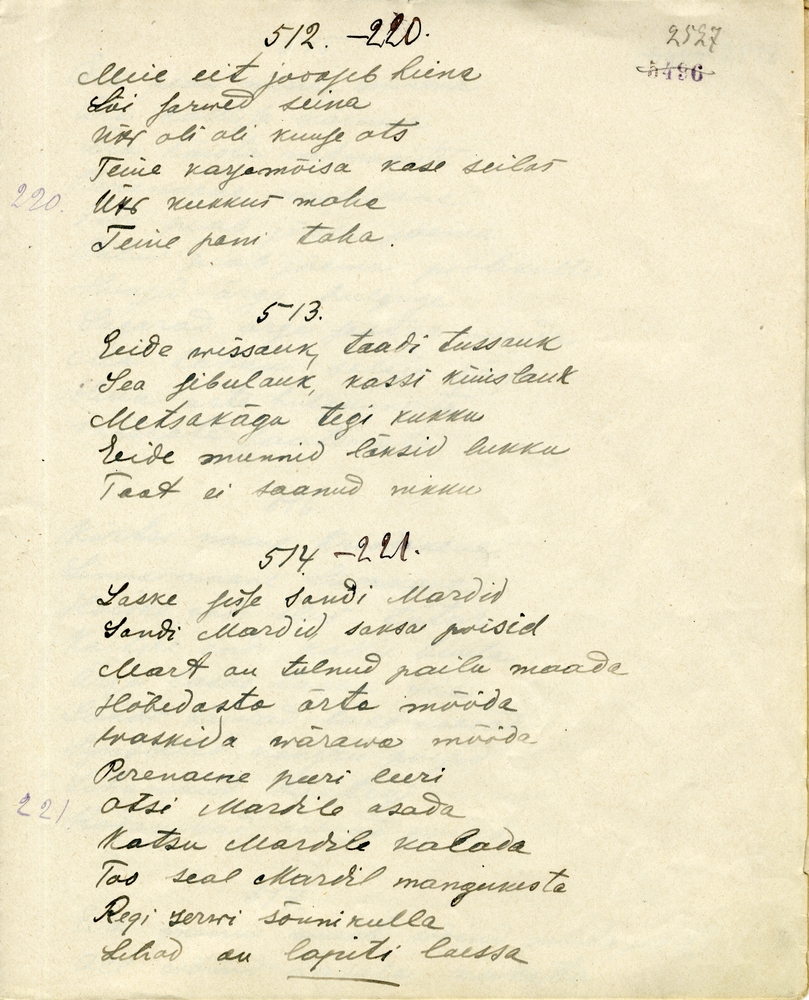 512. -220.
2527
5496
Meie eit jooseb liina
Lõi sarwed seina
Üks oli oli kuuse ots
Teine karjamõisa kase seilas
220. Üks kukkus maha
Teine pani taha.
513.
Eeide wissauk, taadi tussauk
Sea sibulauk, kassi küüslauk
Metsakägu tegi kukku
Eeide munnid läksid lukku
Taat ei saanud nikku
514 -221.
Laske sisse sandi Mardid
Sandi Mardid saksa poisid
Mart on tulnud pailu maada
Hõbedasta ärta mööda
Waskida wärawa mööda
Perenaene peeri leeri
221 Otsi Mardile asada
Katsu Mardile kalada
Too seal Mardil mangukesta
Regi serwi sõnnikulla
Lihad on lapiti laessa